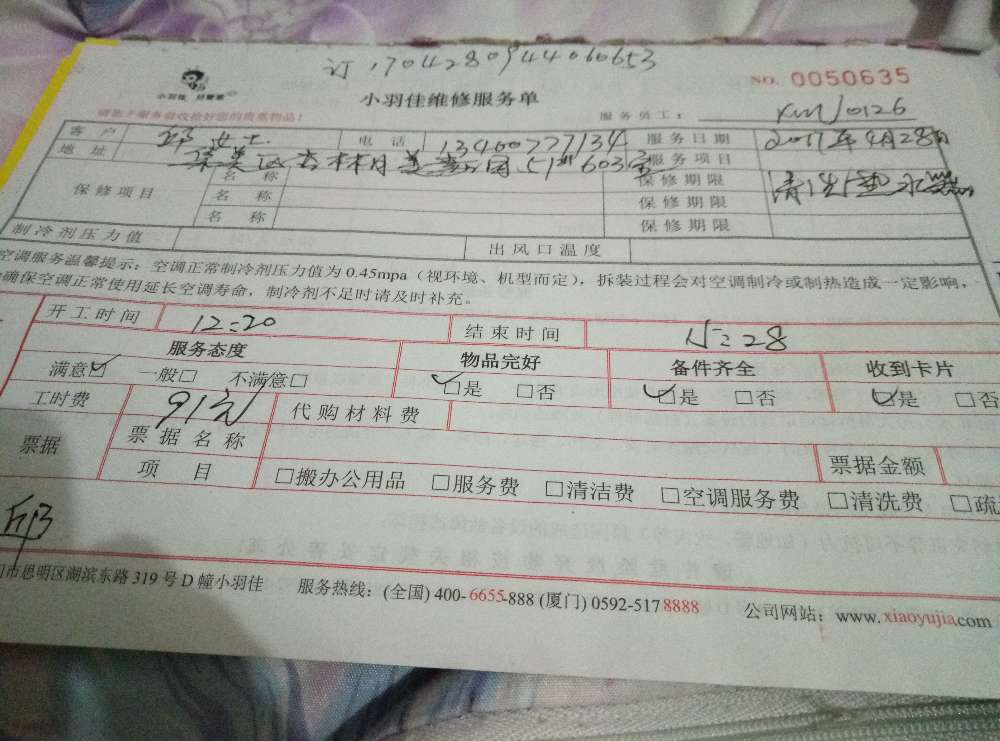 订 1704280944060653
NO. 0050635
小羽佳 好管家
小羽佳维修服务单
服务员工: xm10126
请您于服务前收拾好您的贵重物品!
客户 邱女士 电话 13400777134 服务日期 2017年4月28日
地址 603室 服务项目 清洗
保修项目 名称 保修期限
名称 保修期限
名称 保修期限
制冷剂压力值 出风口温度
空调服务温馨提示: 空调正常制冷剂压力值为0.45mpa (视环境、机型而定), 拆装过程会对空调制冷或制热造成一定影响,
确保空调正常使用延长空调寿命, 制冷剂不足时请及时补充。
开工时间 12:20 结束时间 :28
服务态度 物品完好 备件齐全 收到卡片
满意☑ 一般□ 不满意□ ☑是 □否 ☑是 □否 ☑是 □否
工时费 91元 代购材料费
票据 票据名称 票据金额
项目 □搬办公用品 □服务费 □清洁费 □空调服务费 □清洗费 □疏
邱
门市思明区湖滨东路319号D幢小羽佳 服务热线: (全国) 400-6655-888 (厦门) 0592-5178888 公司网站: www.xiaoyujia.com